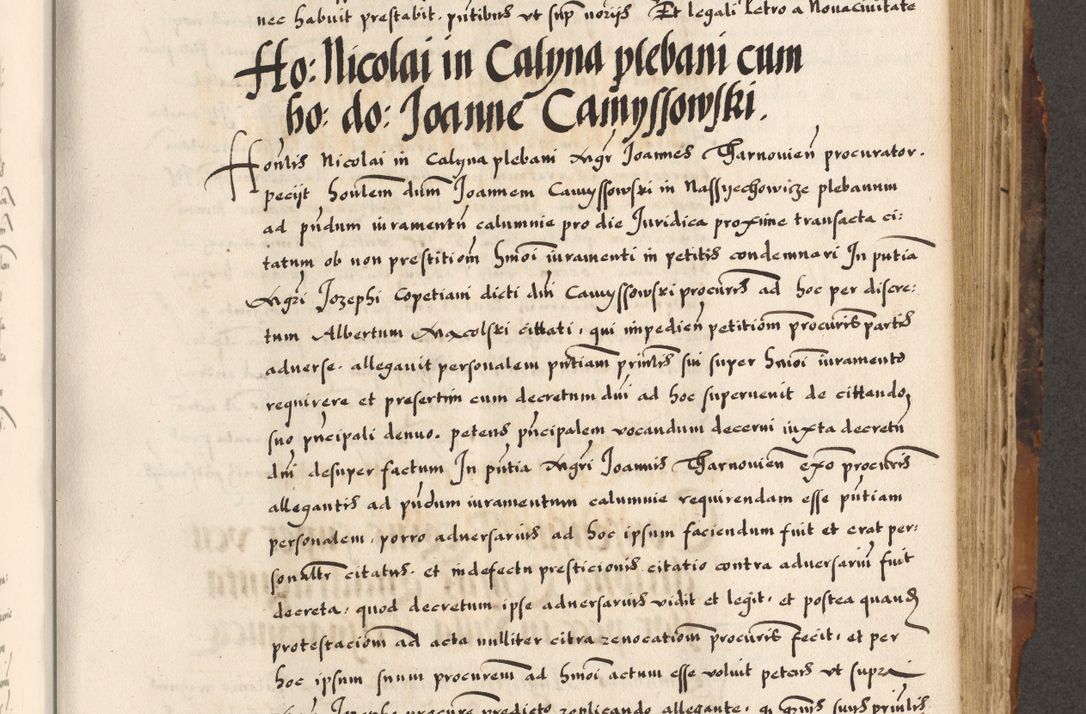 nec habuit prestabit. pn̄tibus vt sup̄ norijs Et legali Petro a Novacivitate
Ho: Nicolai in Calyna plebani cum
ho: do: Joanne Camyssowski.
Honlis Nicolai in Calyna plebani Mgr Joannes Tharnovien̄ procurator.
pecijt honlem dnm̄ Joannem Camyssowski in Nassyechowicze plebanum
ad pn̄dum iuramentū calumnie pro die Juridica proxime transacta ci:
tatum ob non prestitiom̄ hmōi iuramenti in petitis condemnari In pn̄tia
Mgri Jozephi Copetiani dicti dnī Camyssowski procuris ad hoc per discre:
tum Albertum Maxcolski cittati, qui impedien̄ petitiom̄ procuris partis
adverse. allegavit personalem pn̄tiam prin̄lis sui super hmōi iuramento
requirere et presertim cum decretum dnī ad hoc supervenit de cittando
suo pn̄cipali denuo. petens pn̄cipalem vocandum decerni iuxta decretū
dnī desuper factum In pn̄tia Mgri Joannis Tharnovien̄ exo procuris
allegantis ad pn̄dum iuramentum calumnie requirendam esse pn̄tiam
personalem, porro adversarius ad hoc ipsum faciendum fuit et erat per:
sonaltr citatus. et in defectu presticionis citatio contra adversariū fuit
decreta, quod decretum ipse adversarius vidit et legit, et postea quand
protestaciom̄ ad acta nulliter citra revocatiom̄ procuris fecit, et per
hoc ipsum suum procurem ad hmōi actum esse voluit petens vt supra
Jozepho procure predicto replicando allegante, suus prin̄lis